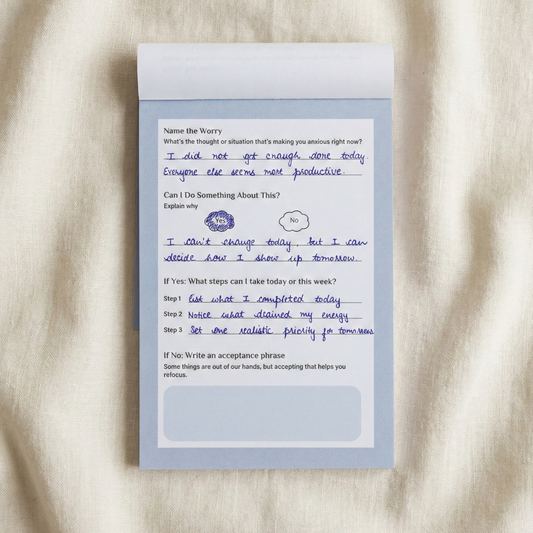 Name the Worry
What's the thought or situation that's making you anxious right now?
I did not get enough done today.
Everyone else seems more productive.
Can I Do Something About This?
Explain why
Yes No
I can't change today, but I can
decide how I show up tomorrow.
If Yes: What steps can I take today or this week?
Step 1 List what I completed today
Step 2 Notice what drained my energy
Step 3 Set one realistic priority for tomorrow
If No: Write an acceptance phrase
Some things are out of our hands, but accepting that helps you
refocus.